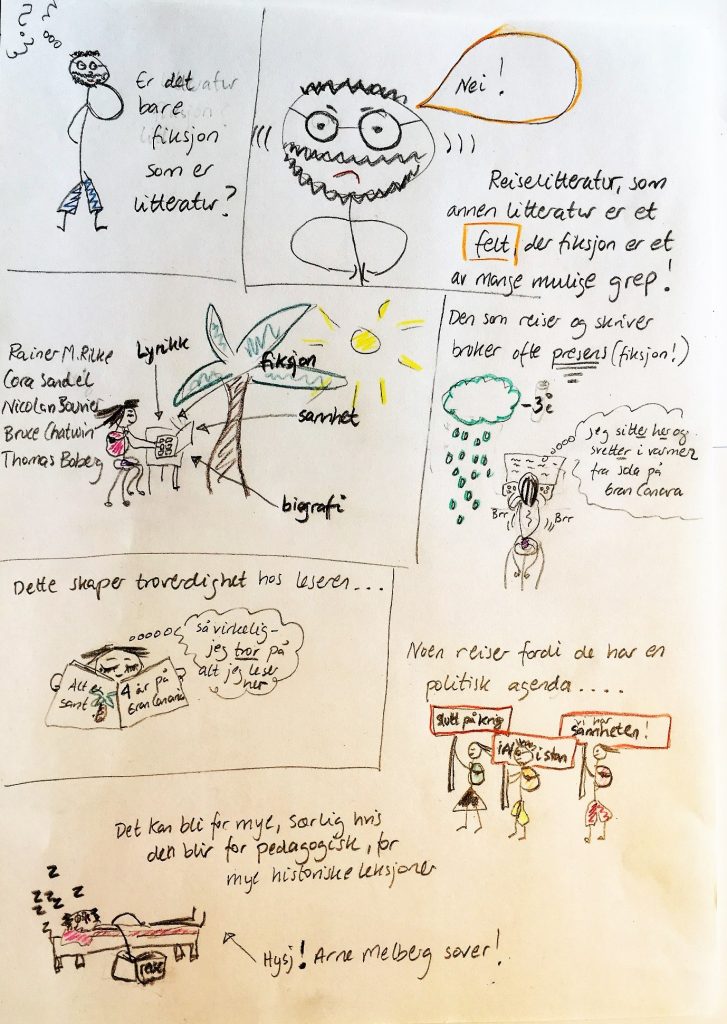 Er det
bare
fiksjon
som er
litteratur?
Nei!
Reiselitteratur, som
annen litteratur er et
felt, der fiksjon er et
av mange mulige grep!
Rainer M. Rilke
Cora Sandel
Nicolan Bouvier
Bruce Chatwin
Thomas Boberg
Lyrikk
fiksjon
sannhet
biografi
Den som reiser og skriver
bruker ofte presens (fiksjon!)
-3
jeg sitter her og
svetter i varmen
fra sola på
Gran Canara
Brr
Brr
Dette skaper troverdighet hos leseren...
så virkelig-
jeg tror på
alt jeg leser
her
Alt er
sant!
4 år på
Gran Canaria
Noen reiser fordi de har en
politisk agenda.....
slutt på krig
i stan
vi har
sannheten!
Det kan bli for mye, særlig hvis
den blir for pedagogisk, for
mye historiske leksjoner
z
z
z
z
z
z
z
reise
Hysj! Arne Melberg sover!